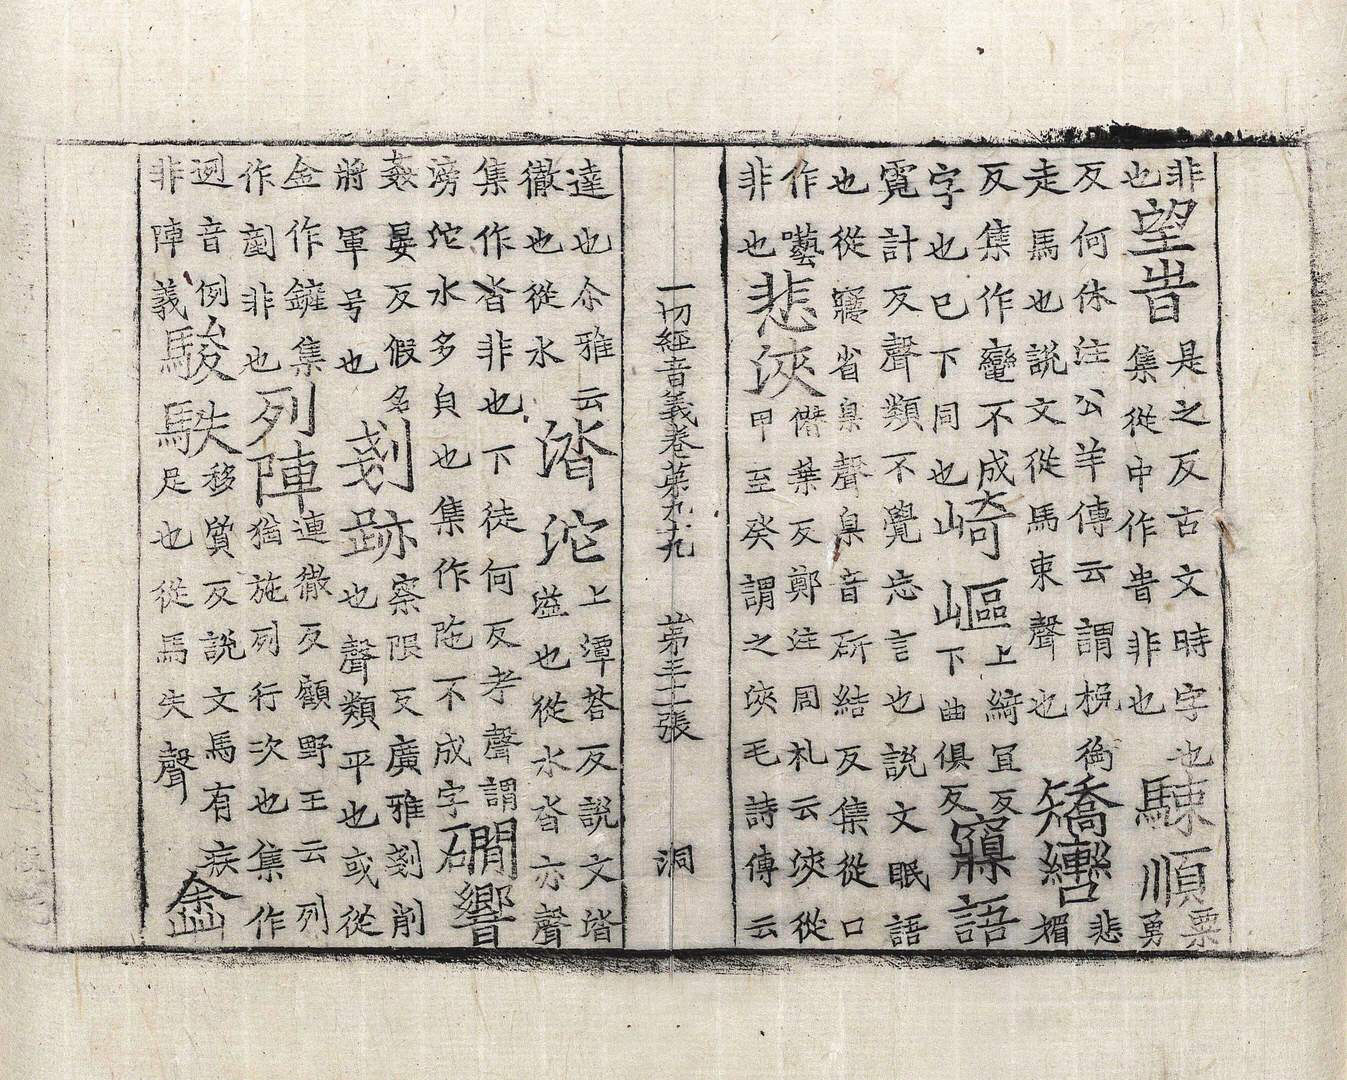 非也望旹是之反古文時字也集從中作旹非也駷順栗勇
反何休注公羊傳云謂梚衡走馬也說文從馬束聲也矯轡悲媚
反集作䜌不成字也巳下同也崎嶇上綺宜反下曲俱反寱語
霓計反聲類不覺忘言也說文眠語也從寱省臬聲臬音研結反集從口
作囈非也悲浹僭葉反鄭注周礼云浹從甲至癸謂之浹毛詩傳云
一切經音義卷苐九十九 苐三十張 洞
達也尒雅云徹也從水涾沱上潭荅反說文涾溢也從水沓亦聲
集作沓非也下徒何反考聲謂滂沱水多皃也集作陁不成字磵響
姦晏反假名將軍号也剗跡察限反廣雅剗削也聲類平也或從
金作鏟集作剷非也列陣連徹反顧野王云列猶施列行次也集作
迾音例非陣義駿駃移質反說文馬有疾足也從馬失聲崟